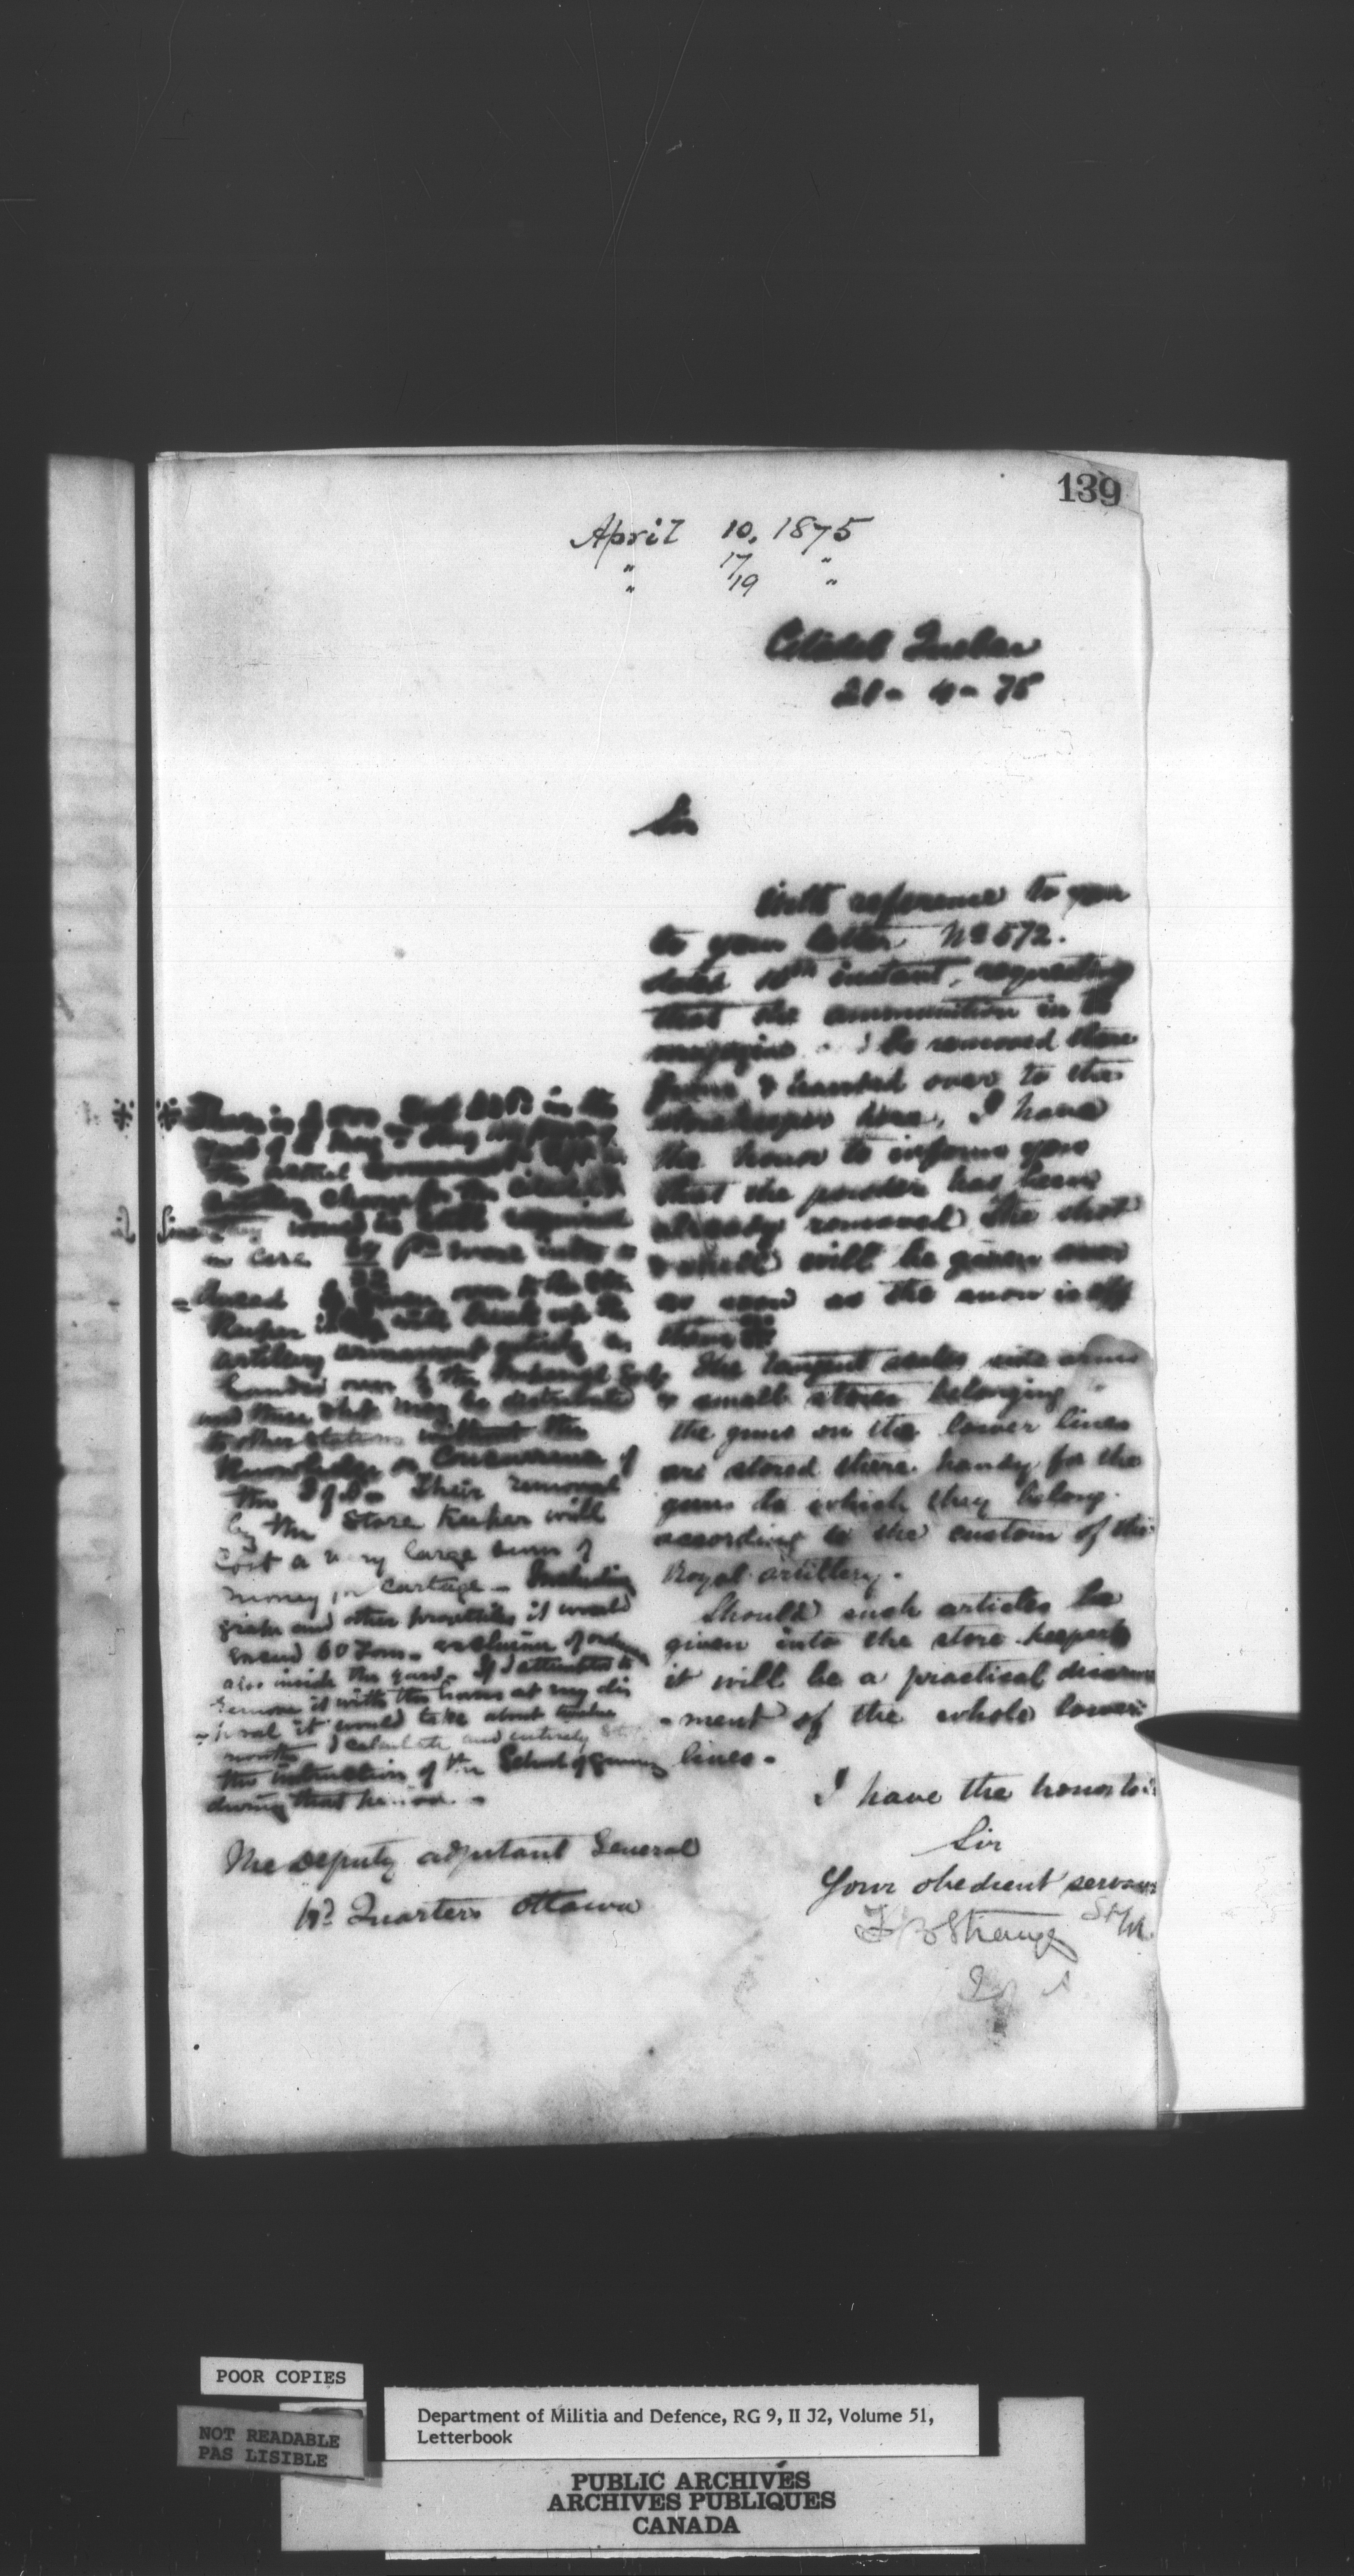 139
April 10, 1875
" 17 "
" 19 "
Citadel Quebec
- 4 - 75
Sir
With reference to your
to your letter No 572.
dated 10th instant, requesting
that the ammunition in
magazine be removed there
from & handed over to the
storekeeper here, I have
the honor to inform you
that the powder has been
already removed the shot
& shell will be given over
as soon as the snow is off
them
The tangent scales side arms
& small stores belonging
the guns on the lower lines
are stored there handy for the
guns to which they belong.
according to the custom of the
Royal artillery.
Should such articles be
given into the store keeper
it will be a practical disarma
-ment of the whole lower
lines.
I have the honor to
Sir
Your obedient servant
T B Strange
in the
the actual
Since they would be still required
in case
given over to the Store
Keeper will break up the
artillery armament
handed over to the
and these shot may be distributed
to other stations without the
Knowledge or Concurrence of
the Their removal
by the Store Keeper will
Cost a very large sum of
money in cartage - Including
grape and other projectiles it would
exceed 60 Tons - exclusive of ordnance
also inside the yard - If I attempted to
remove it with the horses at my dis
-posal it would take about twelve
months I calculate and entirely
the instruction of the School of Gunnery
during that period -
The Deputy adjutant General
Hd Quarters Ottawa
POOR COPIES
NOT READABLE
PAS LISIBLE
Department of Militia and Defence, RG 9, II J2, Volume 51,
Letterbook
PUBLIC ARCHIVES
ARCHIVES PUBLIQUES
CANADA